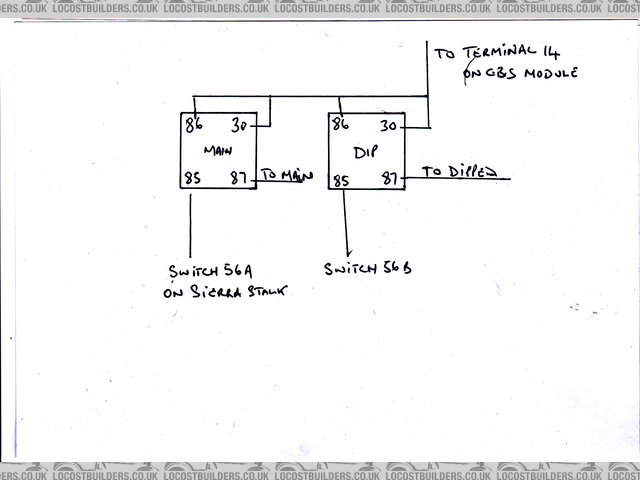 LOCOSTBUILDERS.CO.UK LOCOSTBUILDERS.CO.UK LOCOSTBUILDERS.CO.UK LOCOSTBUILDERS.CO.UK LOCOSTBUILDERS.CO.UK
TO TERMINAL 14
ON GBS MODULE
86 30
MAIN
85 87
TO MAIN
86 30
DIP
85 87
TO DIPPED
SWITCH 56A
ON SIERRA STALK
SWITCH 56B
LOCOSTBUILDERS.CO.UK LOCOSTBUILDERS.CO.UK LOCOSTBUILDERS.CO.UK LOCOSTBUILDERS.CO.UK LOCOSTBUILDERS.CO.UK